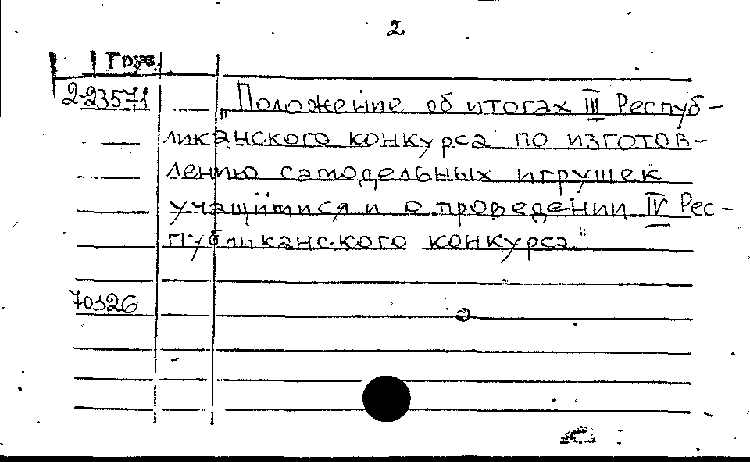 2
Груз.
2-23571 „Положение об итогах III Респуб-
ликанского конкурса по изготов-
лению самодельных игрушек
учащимися и о проведении IV Рес-
публиканского конкурса"
70326